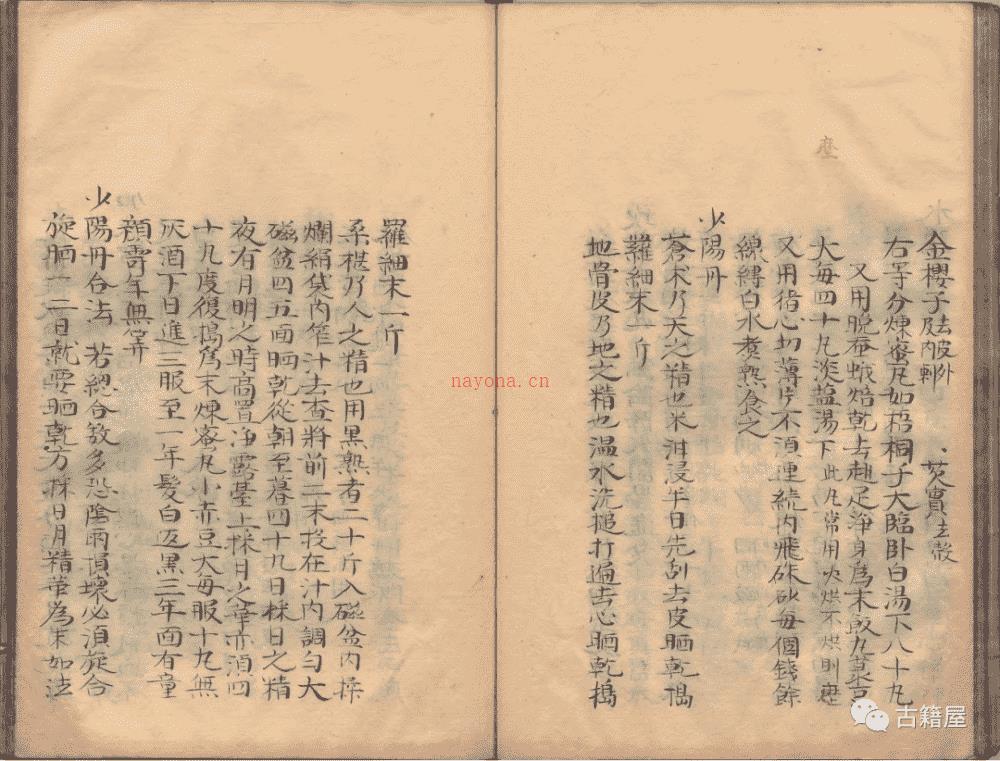 金櫻子 去皮外 內刺 芡實 去殼
右等分煉蜜丸如梧桐子大臨卧白湯下八十丸
又用晚蚕蛾焙乾去翅足淨身為末飯丸
大每四十丸淡塩湯下此丸常用火烘不烘則
又用猪心切薄片不須連統內飛硃砂每個錢餘
線縛白水煮熟食之
少陽丹
蒼术乃天之精也米泔浸半日先刮去皮晒乾搗
羅細末一斤
地骨皮乃地之精也温水洗搥打遍去心晒乾搗
羅細末一斤
桑椹乃人之精也用黑熟者二十斤入磁盆內揉
爛絹袋內笮汁去查將前二末投在汁內調勻大
磁盆四五面晒乾從朝至暮四十九日採日之精
夜有月明之時高置淨露臺上採月之華亦須四
十九度復搗為末煉蜜丸小赤豆大每服十九無
灰酒下日進三服至一年髮白返黑三年面有童
顏壽年無筭
少陽丹合法 若總合致多恐陰雨損壞必須旋合
旋晒一二日就要晒乾方採日月精華為末如法
nayona.cn
古籍屋